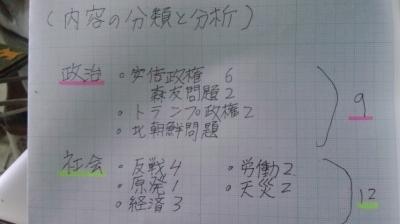 (内容の分類と分析)
政治 ・安倍政権 6
森友問題 2
・トランプ政権 2
・北朝鮮問題
9
社会 ・反戦 4 ・労働 2
・原発 1 ・天災 2
・経済 3
12